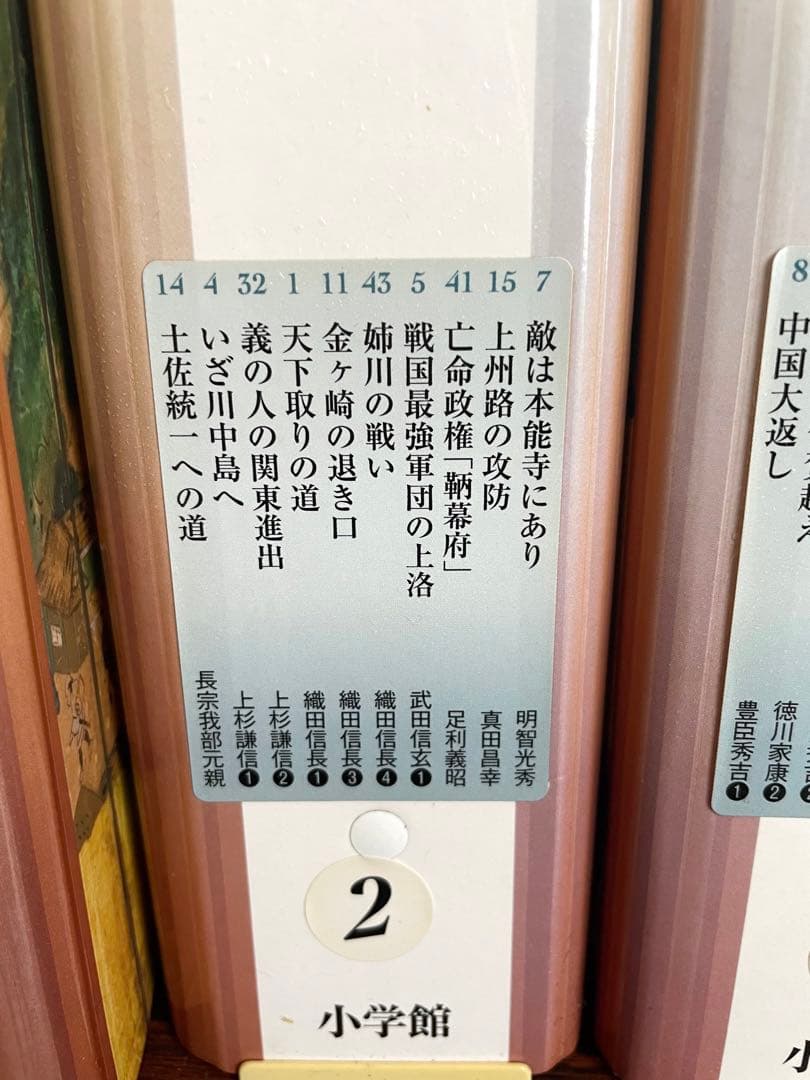 7 敵は本能寺にあり 明智光秀
15 上州路の攻防 真田昌幸
41 亡命政権「鞆幕府」 足利義昭
5 戦国最強軍団の上洛 武田信玄❶
43 姉川の戦い 織田信長❹
11 金ヶ崎の退き口 織田信長❸
1 天下取りの道 織田信長❶
32 義の人の関東進出 上杉謙信❷
4 いざ川中島へ 上杉謙信❶
14 土佐統一への道 長宗我部元親
2
小学館
徳川家康❷
8 中国大返し 豊臣秀吉❶